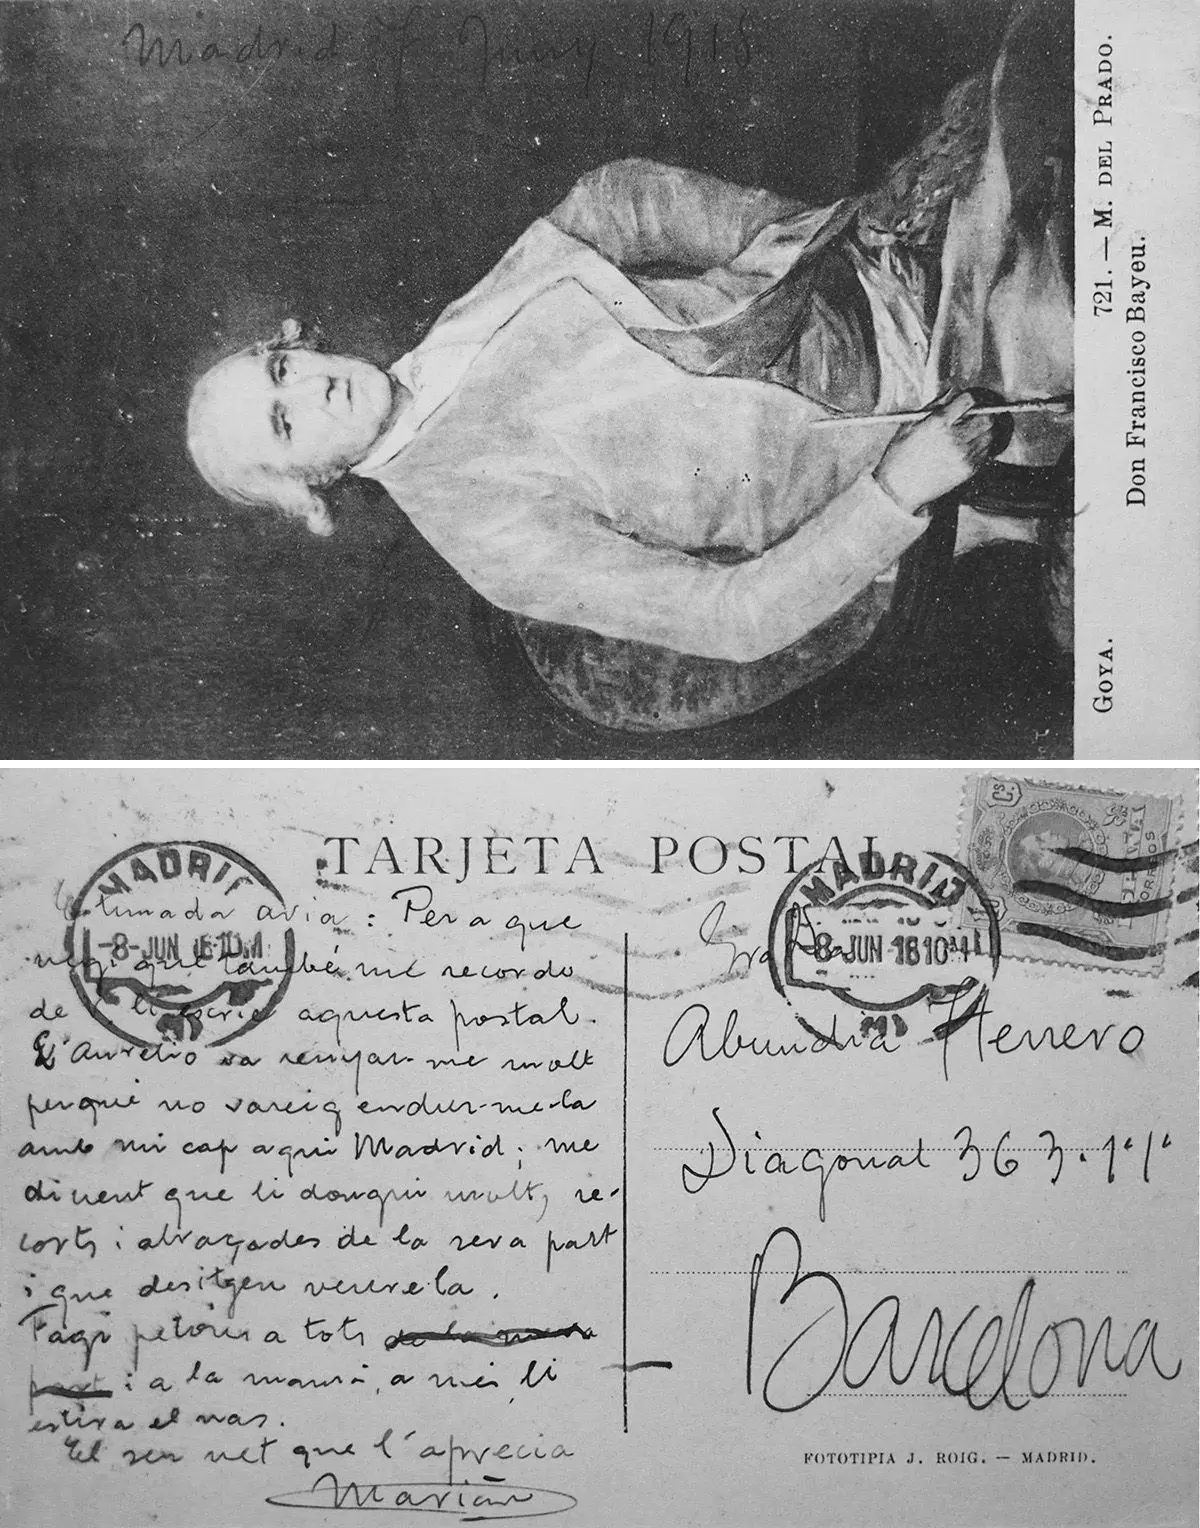 Madrid 7 Juny 1918
721. — M. DEL PRADO.
GOYA.
Don Francisco Bayeu.
TARJETA POSTAL
MADRID
-8-JUN 18·10M
MADRID
8-JUN 18 10M
CORREOS
Estimada avia: Per a que
vegi que també me recordo
de li escric aquesta postal.
L'Aurelio va renyar-me molt
perquè no vareig endur-me-la
amb mi cap aqui Madrid; me
diuent que li dongui molts re-
corts i abraçades de la seva part
i que desitgen veure-la.
Fagi petons a tots
i a la mamà, a més li
estira el nas.
El seu net que l'aprecia
Marian
Abundia Herrero
Diagonal 363. 1º 1ª
Barcelona
FOTOTIPIA J. ROIG. — MADRID.